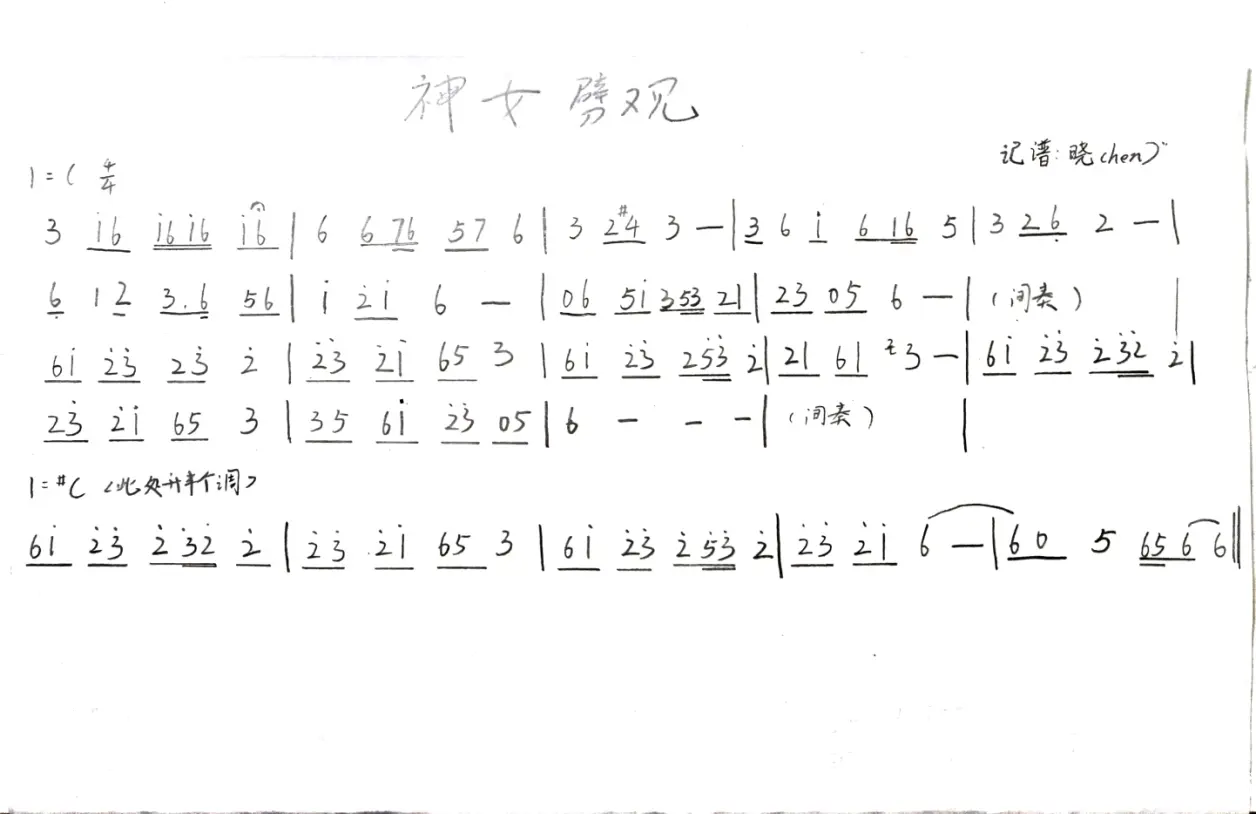 神女劈观
记谱:晓chen
1=C 4/4
3 i̇6 i̇6i̇6 i̇6 | 6 6 76 57 6 | 3 2#4 3 — | 3 6 i̇ 6 i̇6 5 | 3 2 6̣ 2 — |
6̣ 1 2 3.6̣ 56 | i̇ 2̇i̇ 6 — | 06 5i̇ 353 21 | 23 05 6 — | (间奏) |
6i̇ 2̇3̇ 2̇3̇ 2̇ | 2̇3̇ 2̇i̇ 65 3 | 6i̇ 2̇3̇ 2̇5̇3̇ 2̇ | 21 61 ²3 — | 6i̇ 2̇3̇ 2̇3̇2̇ 2̇ |
2̇3̇ 2̇i̇ 65 3 | 35 6i̇ 2̇3̇ 05 | 6 — — — | (间奏) |
1=#C (此处升半个调)
6i̇ 2̇3̇ 2̇3̇2̇ 2̇ | 2̇3̇ 2̇i̇ 65 3 | 6i̇ 2̇3̇ 2̇5̇3̇ 2̇ | 2̇3̇ 2̇i̇ 6 — | 60 5 656 6 ||